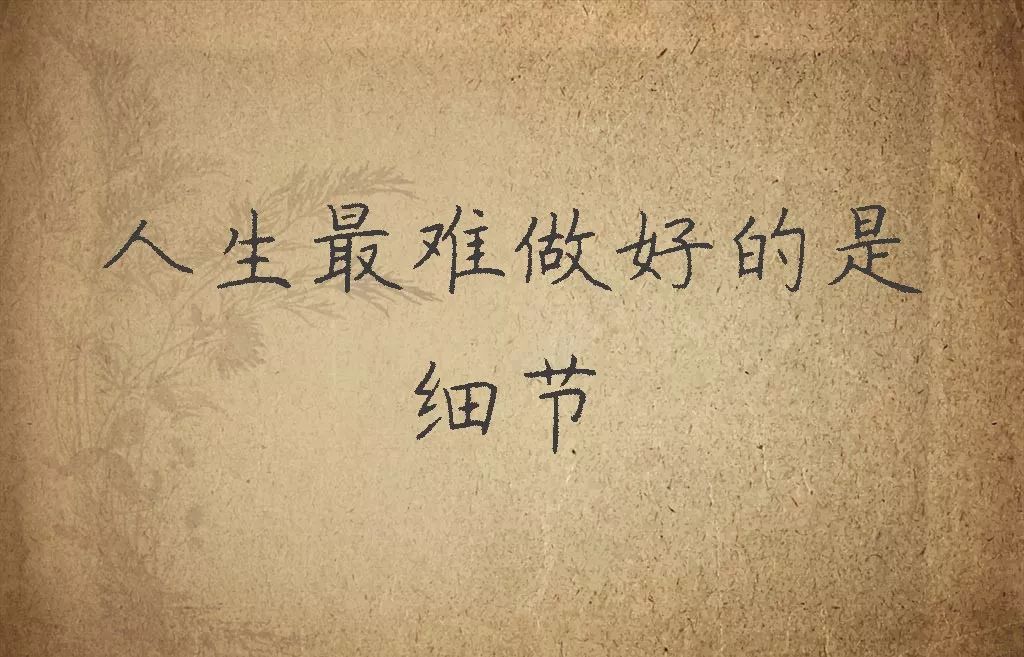 人生最难做好的是
细节